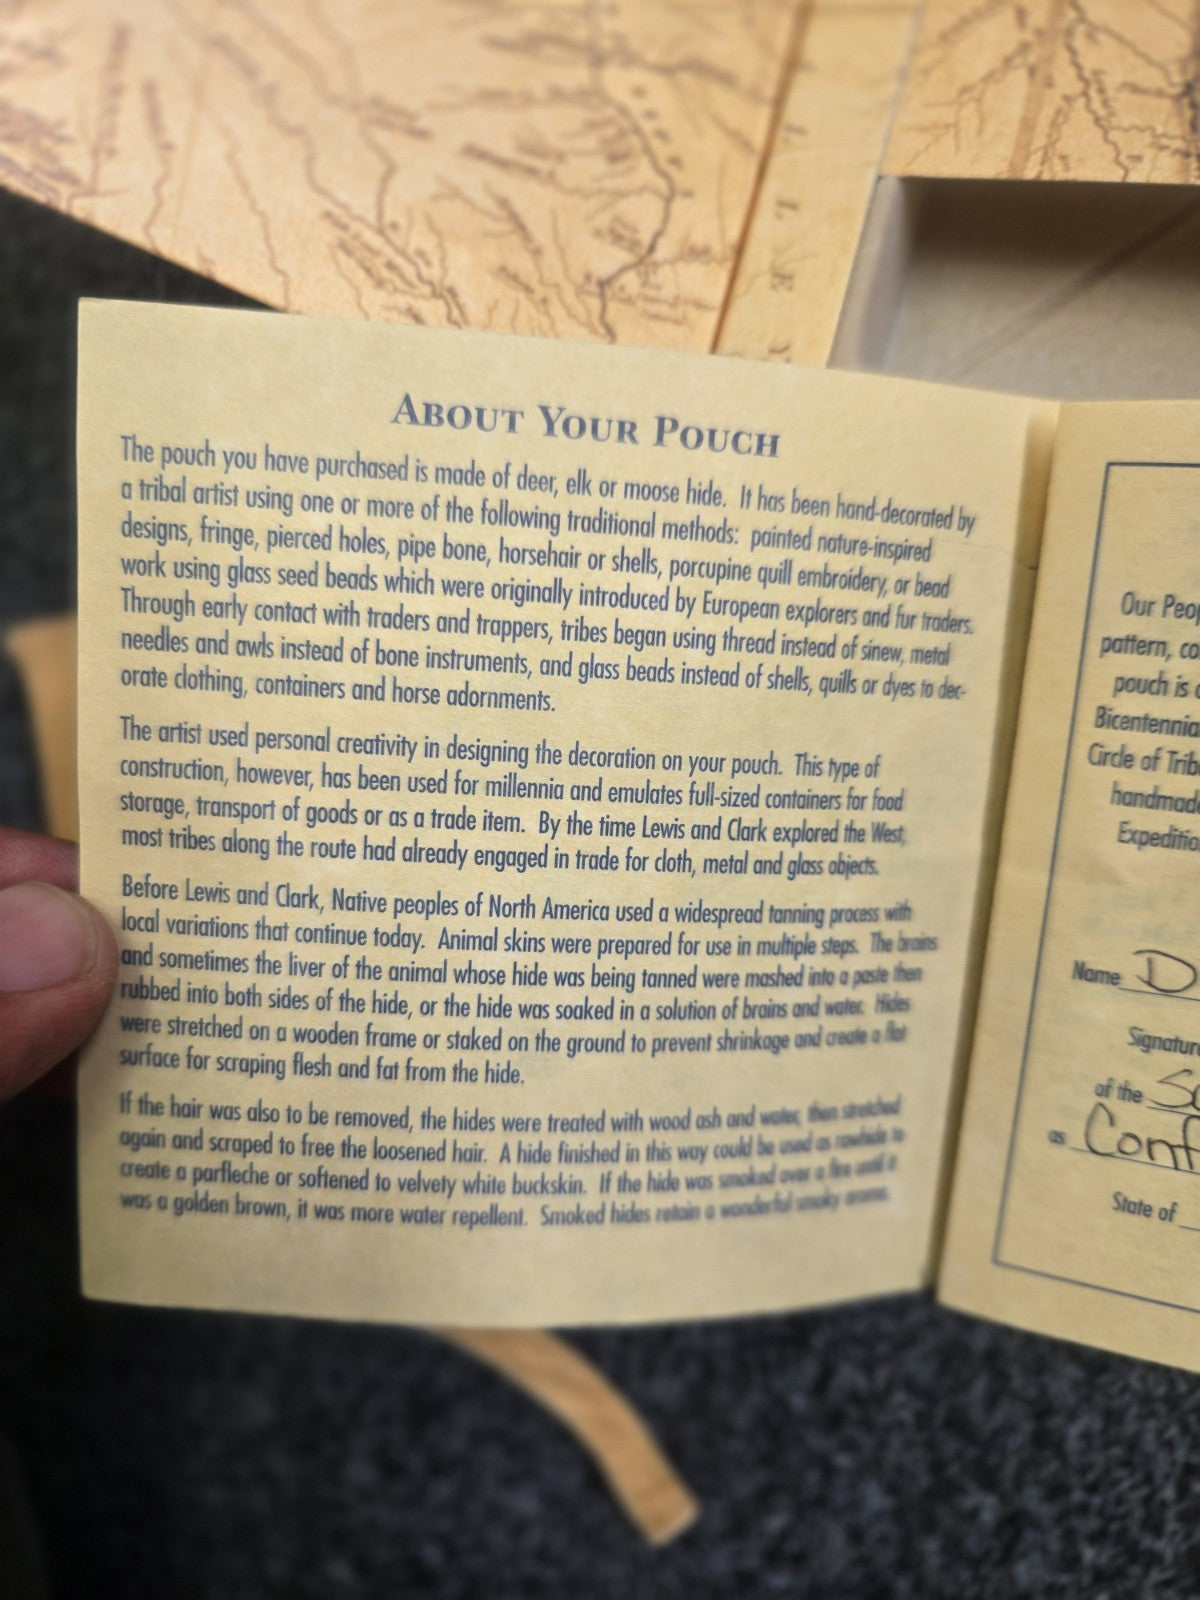 ABOUT YOUR POUCH
The pouch you have purchased is made of deer, elk or moose hide. It has been hand-decorated by
a tribal artist using one or more of the following traditional methods: painted nature-inspired
designs, fringe, pierced holes, pipe bone, horsehair or shells, porcupine quill embroidery, or bead
work using glass seed beads which were originally introduced by European explorers and fur traders.
Through early contact with traders and trappers, tribes began using thread instead of sinew, metal
needles and awls instead of bone instruments, and glass beads instead of shells, quills or dyes to dec-
orate clothing, containers and horse adornments.
The artist used personal creativity in designing the decoration on your pouch. This type of
construction, however, has been used for millennia and emulates full-sized containers for food
storage, transport of goods or as a trade item. By the time Lewis and Clark explored the West,
most tribes along the route had already engaged in trade for cloth, metal and glass objects.
Before Lewis and Clark, Native peoples of North America used a widespread tanning process with
local variations that continue today. Animal skins were prepared for use in multiple steps. The brains
and sometimes the liver of the animal whose hide was being tanned were mashed into a paste then
rubbed into both sides of the hide, or the hide was soaked in a solution of brains and water. Hides
were stretched on a wooden frame or staked on the ground to prevent shrinkage and create a flat
surface for scraping flesh and fat from the hide.
If the hair was also to be removed, the hides were treated with wood ash and water, then stretched
again and scraped to free the loosened hair. A hide finished in this way could be used as rawhide to
create a parfleche or softened to velvety white buckskin. If the hide was smoked over a fire until it
was a golden brown, it was more water repellent. Smoked hides retain a wonderful smoky aroma.
Our Peop
pattern, co
pouch is
Bicentennia
Circle of Trib
handmade
Expeditio
Name D
Signature
of the
as Conf
State of